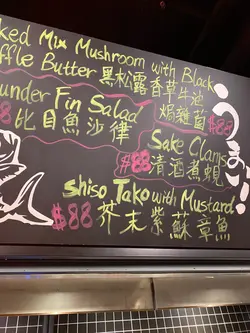 ked Mix Mushroom with Black
ffle Butter 黑松露香草牛油
焗雜菌
under Fin Salad $88
比目魚沙律
Sake Clams
$88 清酒煮蜆
Shiso Tako with Mustard
$88 芥末紫蘇章魚
うまい!